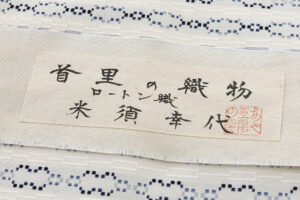 首里の織物
ロートン織
米須幸代